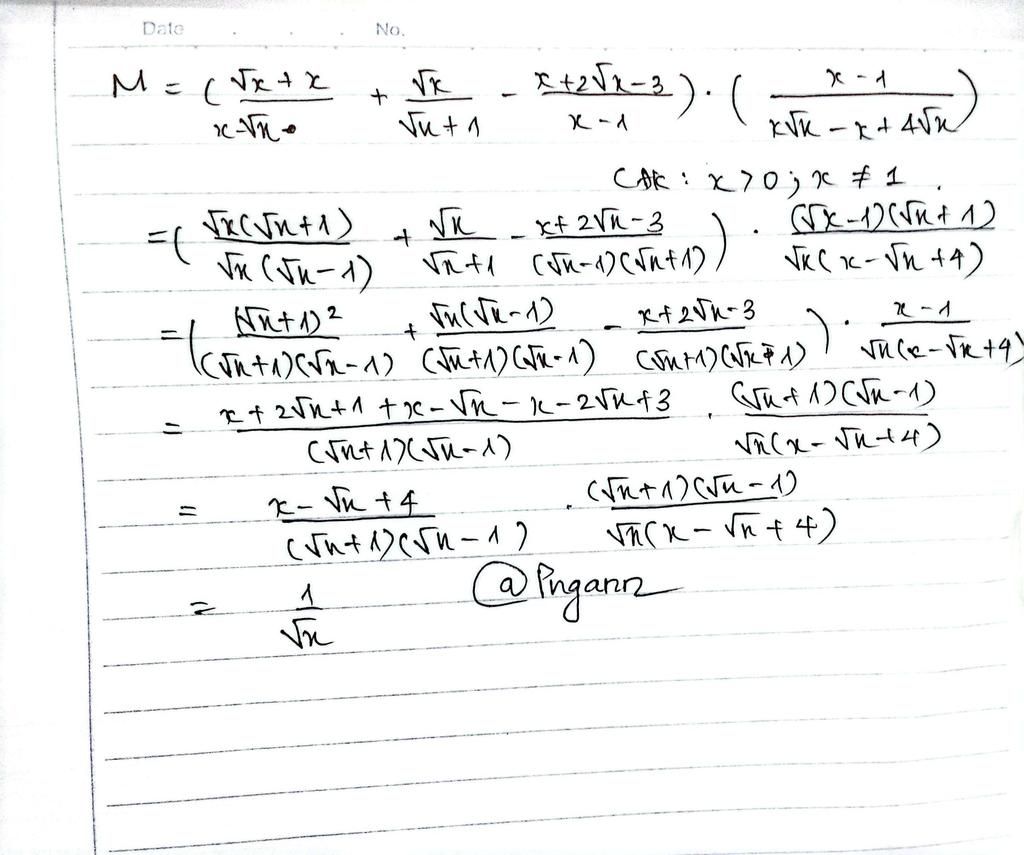 Date . . . No.
M = ( (√x + x)/(x - √x) + √x/(√x + 1) - (x + 2√x - 3)/(x - 1) ) . ( (x - 1)/(x√x - x + 4√x) )
CĐK : x > 0 ; x ≠ 1 .
= ( √x(√x + 1)/(√x(√x - 1)) + √x/(√x + 1) - (x + 2√x - 3)/((√x - 1)(√x + 1)) ) . (√x - 1)(√x + 1)/(√x(x - √x + 4))
= ( (√x + 1)²/((√x + 1)(√x - 1)) + √x(√x - 1)/((√x + 1)(√x - 1)) - (x + 2√x - 3)/((√x + 1)(√x - 1)) ) . (x - 1)/(√x(x - √x + 4))
= (x + 2√x + 1 + x - √x - x - 2√x + 3)/((√x + 1)(√x - 1)) . (√x + 1)(√x - 1)/(√x(x - √x + 4))
= (x - √x + 4)/((√x + 1)(√x - 1)) . (√x + 1)(√x - 1)/(√x(x - √x + 4))
= 1/√x @Pngann